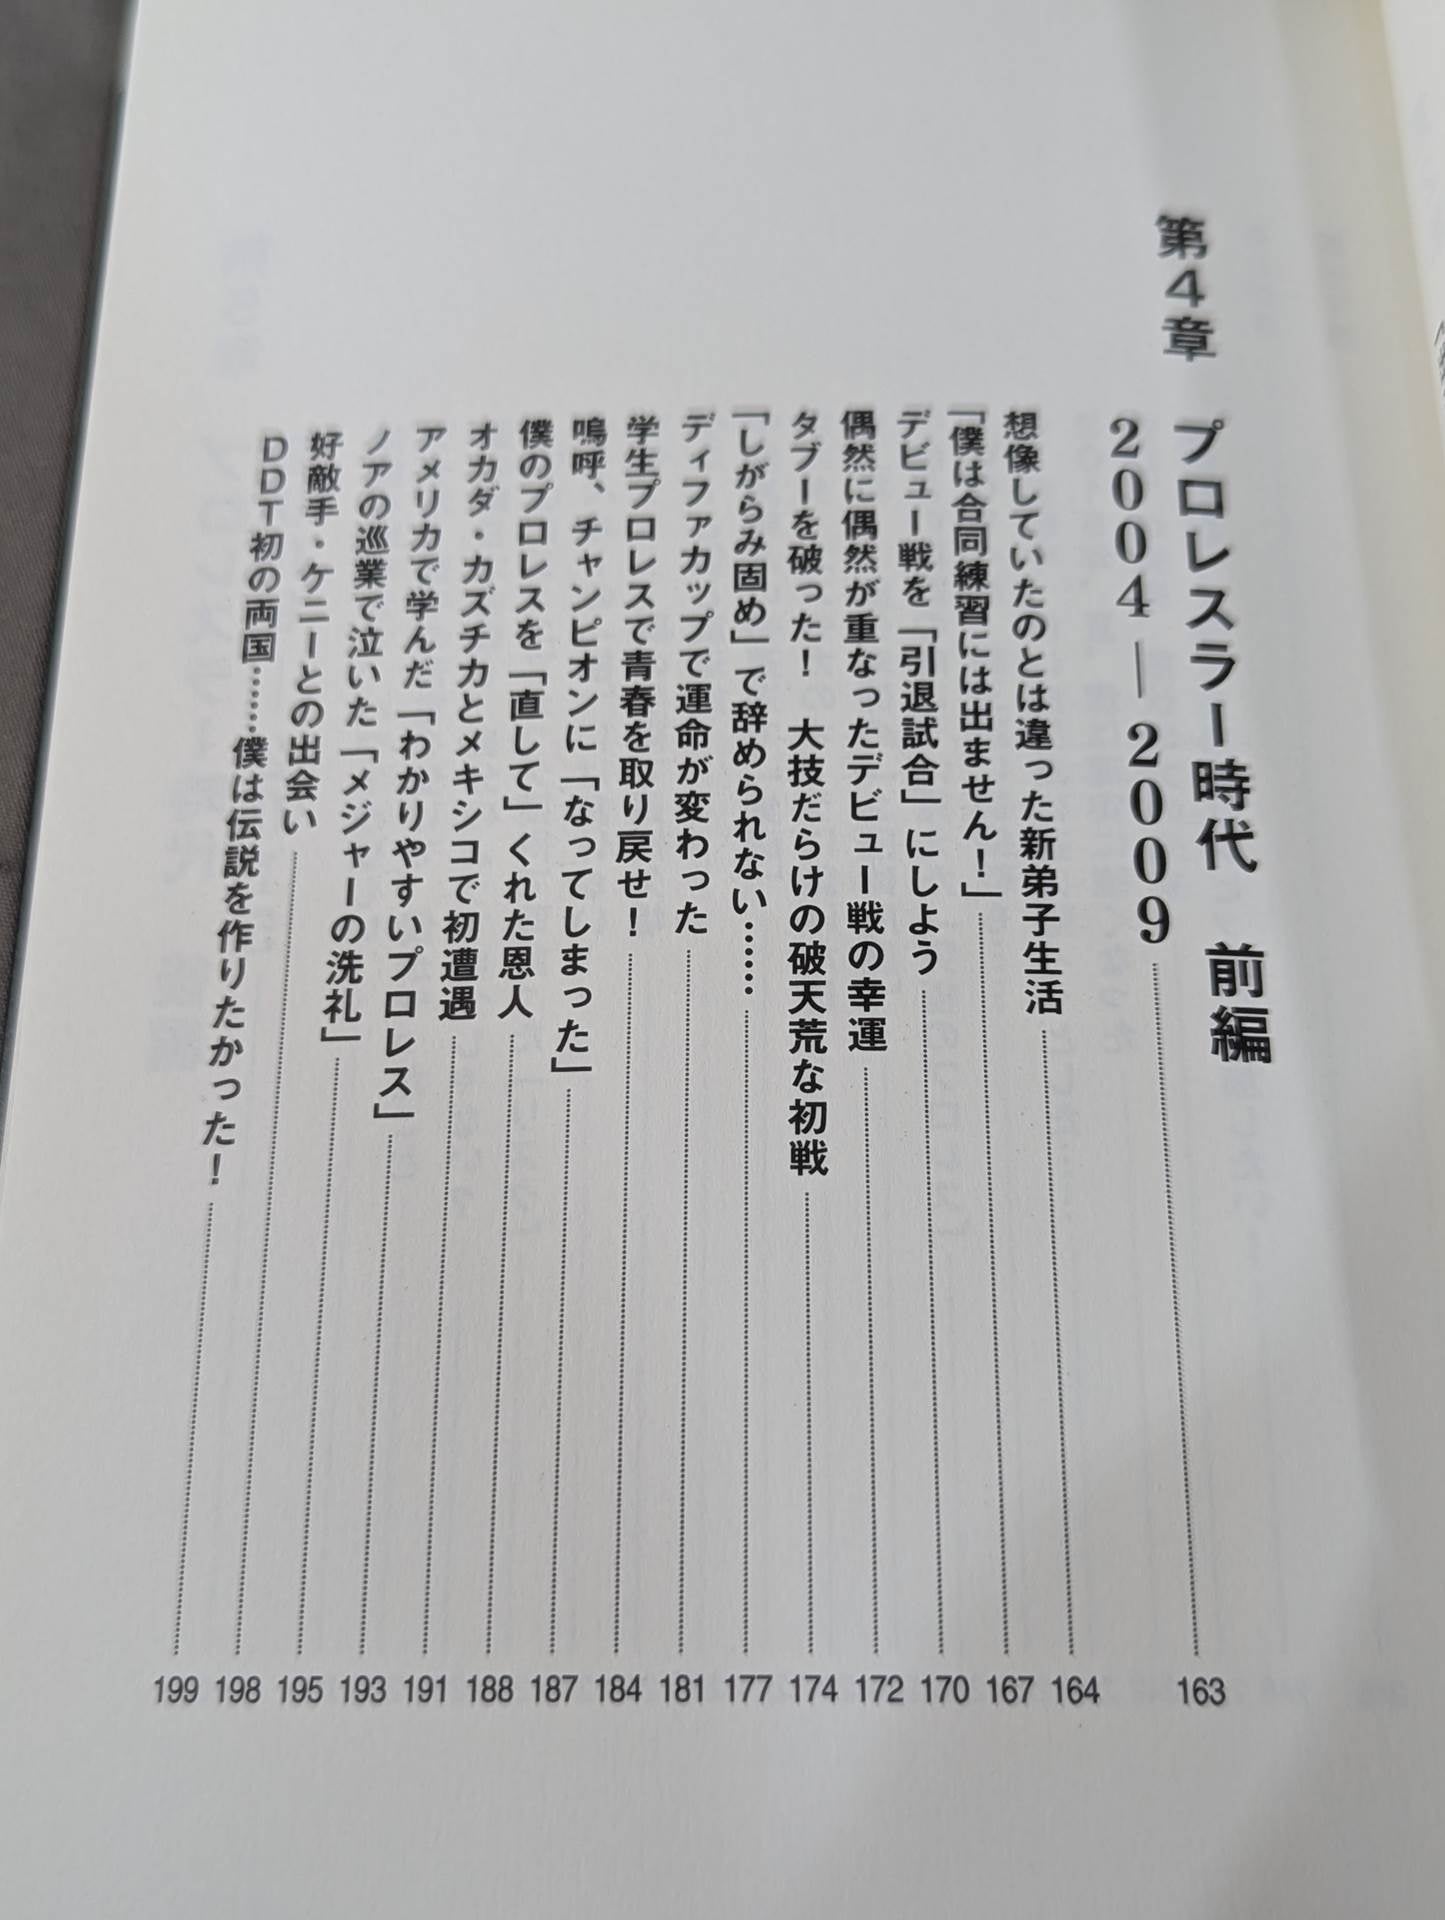 第4章 プロレスラー時代 前編
2004―2009……163
想像していたのとは違った新弟子生活……164
「僕は合同練習には出ません！」……167
デビュー戦を「引退試合」にしよう……170
偶然に偶然が重なったデビュー戦の幸運……172
タブーを破った！ 大技だらけの破天荒な初戦……174
「しがらみ固め」で辞められない…………177
ディファカップで運命が変わった……181
学生プロレスで青春を取り戻せ！……184
嗚呼、チャンピオンに「なってしまった」……187
僕のプロレスを「直して」くれた恩人……188
オカダ・カズチカとメキシコで初遭遇……191
アメリカで学んだ「わかりやすいプロレス」……193
ノアの巡業で泣いた「メジャーの洗礼」……195
好敵手・ケニーとの出会い……198
DDT初の両国……僕は伝説を作りたかった！……199